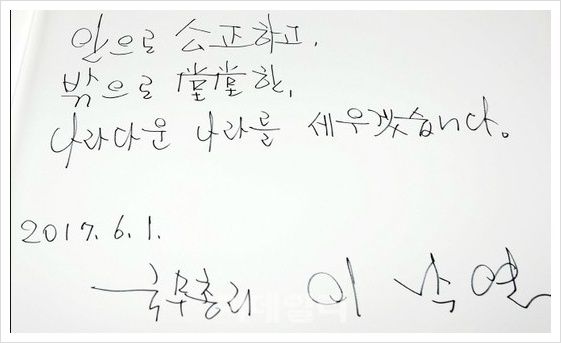 안으로 公正하고,
밖으로 堂堂한,
나라다운 나라를 세우겠습니다.
2017. 6. 1.
국무총리 이 낙 연